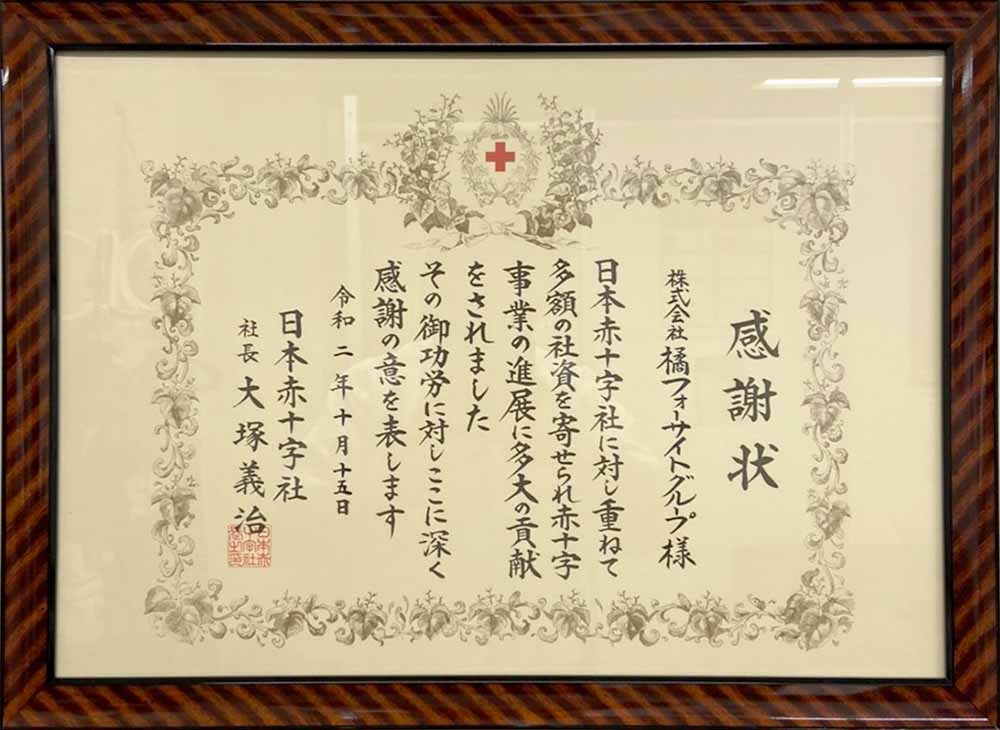 感謝状
株式会社 橘フォーサイトグループ様
日本赤十字社に対し重ねて
多額の社資を寄せられ赤十字
事業の進展に多大の貢献
をされました
その御功労に対しここに深く
感謝の意を表します
令和二年十月十五日
日本赤十字社
社長 大塚義治